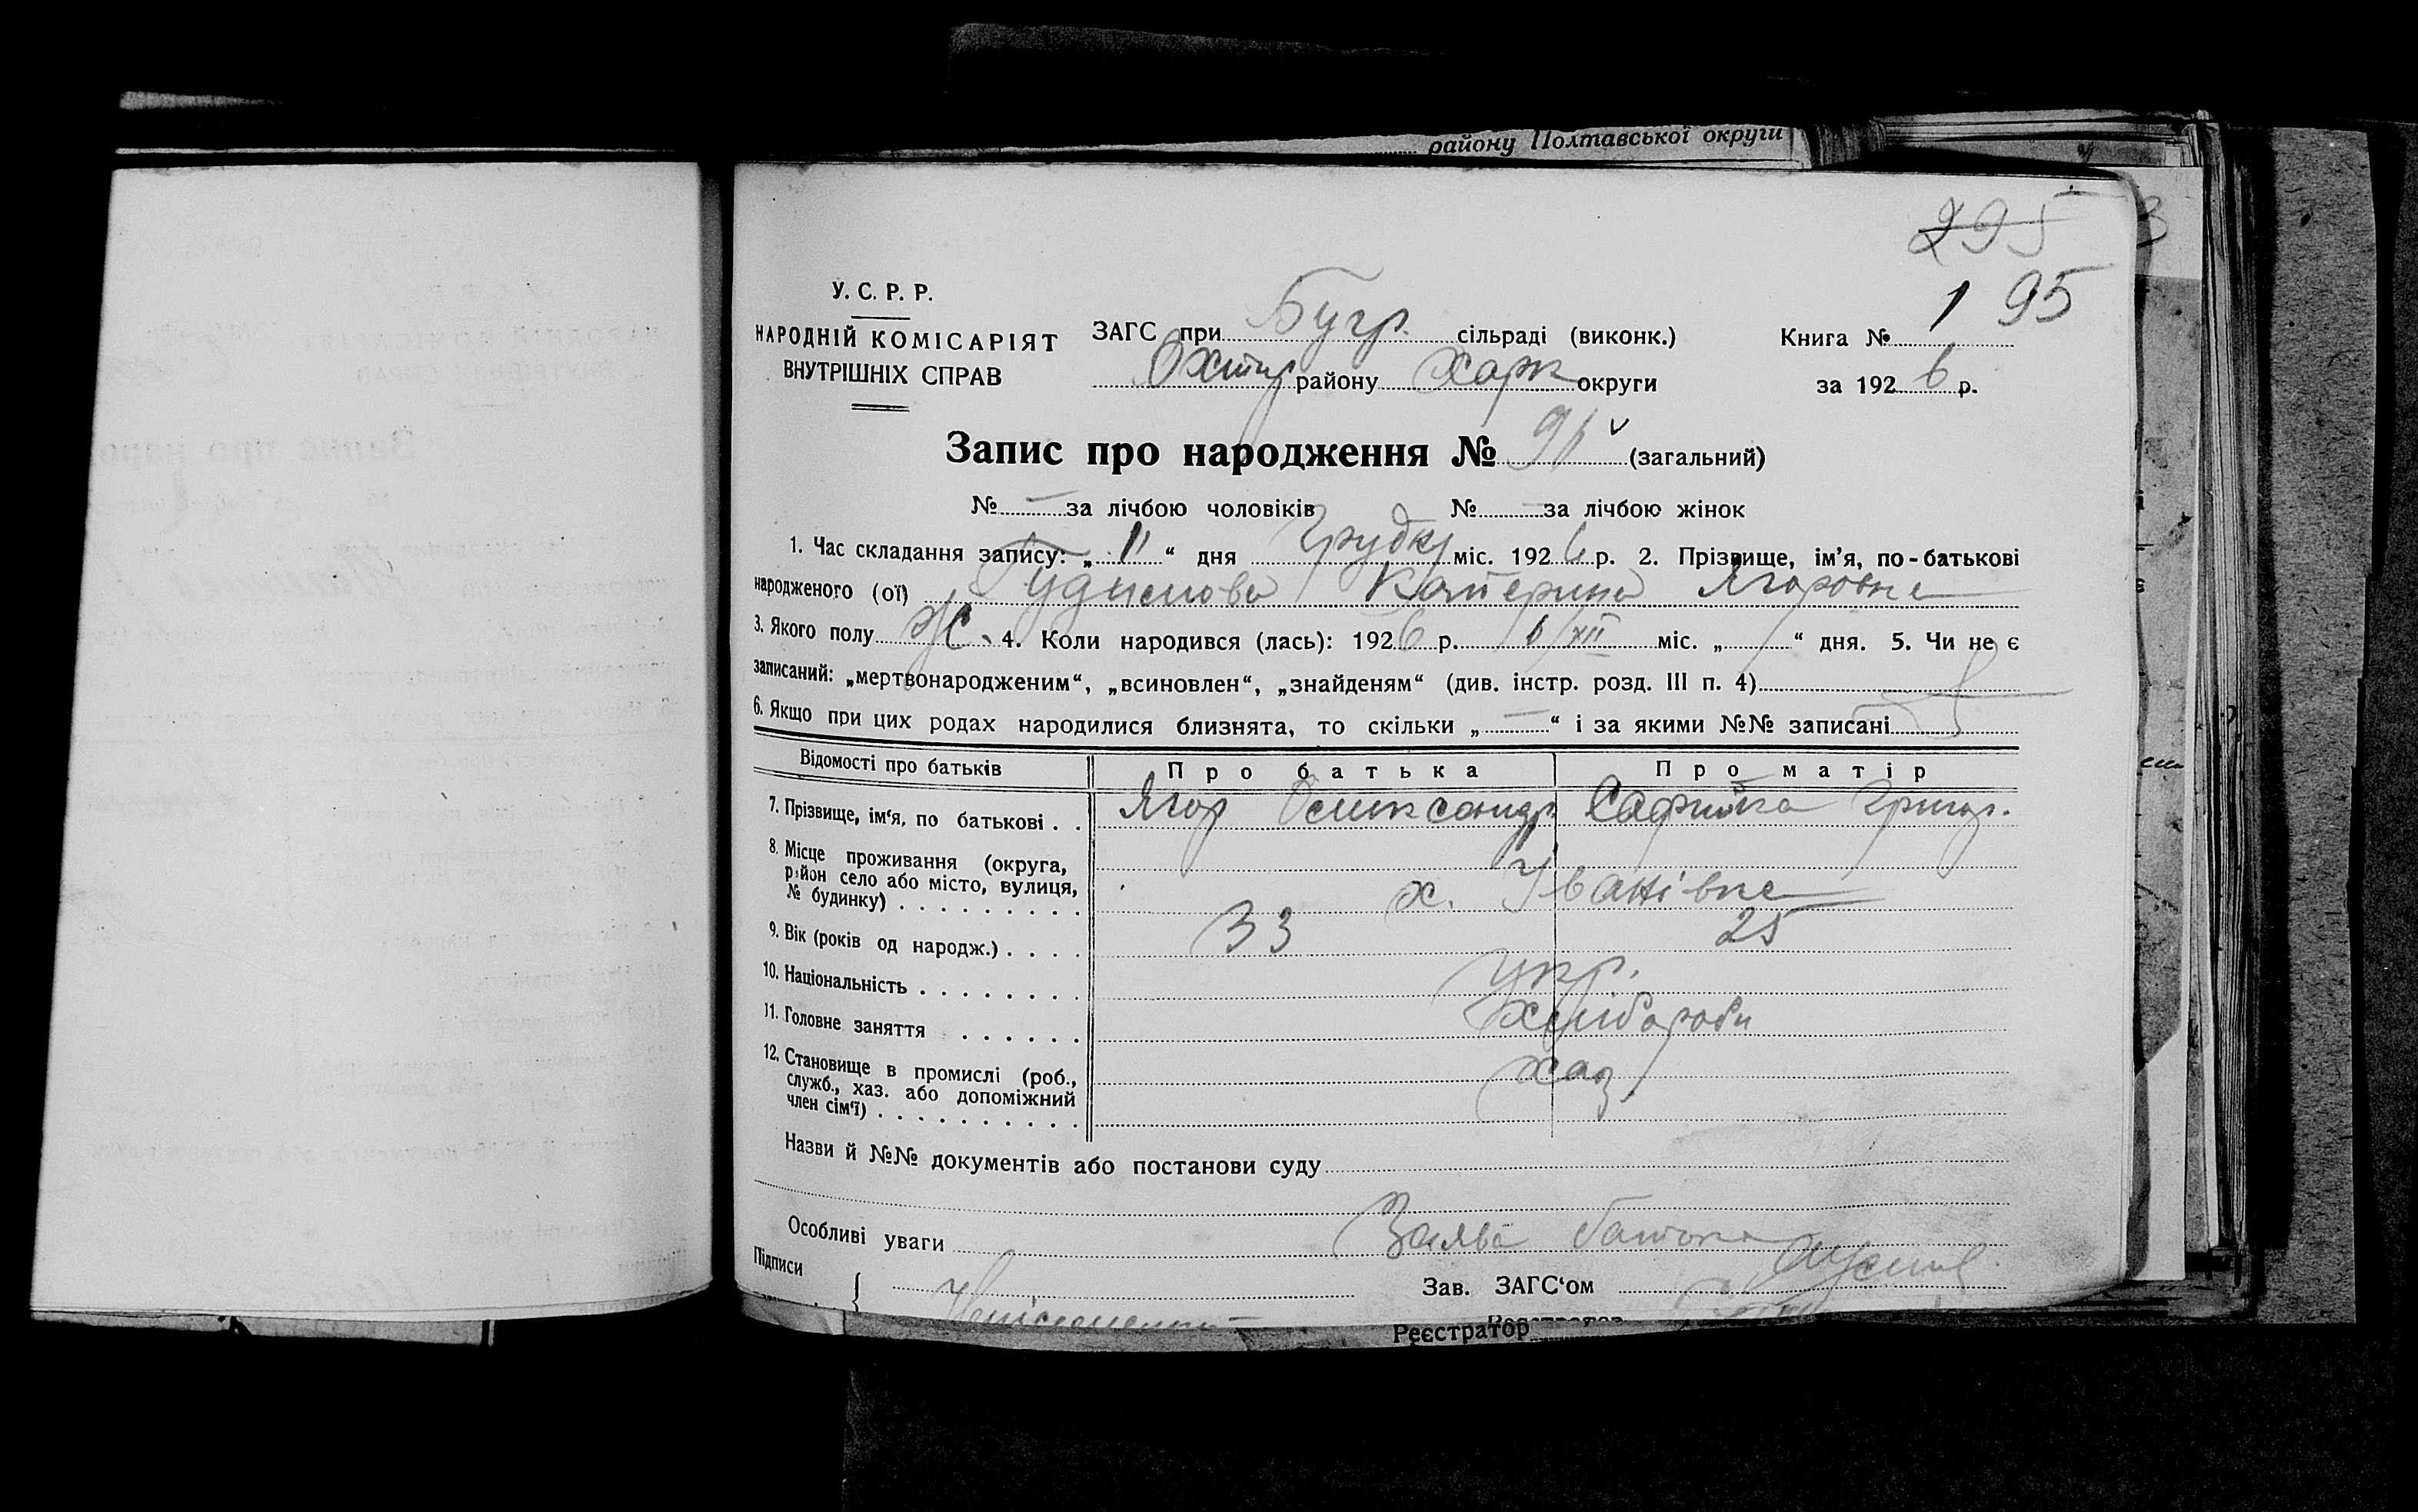 району Полтавської округи
295
У. С. Р. Р.
НАРОДНІЙ КОМІСАРІЯТ
ВНУТРІШНІХ СПРАВ
ЗАГС при Бугр. сільраді (виконк.)
Охтир району Харк округи
Книга № 1 95
за 1926 р.
Запис про народження № (загальний)
№ — за лічбою чоловіків № — за лічбою жінок
1. Час складання запису: „11“ дня Грудня міс. 1926 р. 2. Прізвище, ім'я, по-батькові
народженого (ої) Катерина Ягоровна
3. Якого полу Ж. 4. Коли народився (лась): 1926 р. 6/XII міс. „ “ дня. 5. Чи не є
записаний: „мертвонародженим“, „всиновлен“, „знайденям“ (див. інстр. розд. III п. 4)
6. Якщо при цих родах народилися близнята, то скільки „—“ і за якими №№ записані
Відомості про батьків Про батька Про матір
7. Прізвище, ім'я, по батькові . . Ягор Олександр. Софийка Григор.
8. Місце проживання (округа,
район село або місто, вулиця,
№ будинку) . . . . . . . . . х. Іванівка
9. Вік (років од народж.) . . . . 33 25
10. Національність . . . . . . . . Укр.
11. Головне заняття . . . . . . Хлібороби
12. Становище в промислі (роб.,
служб., хаз. або допоміжний
член сім'ї) . . . . . . . . . . хаз.
Назви й №№ документів або постанови суду
Особливі уваги Заява батька
Підписи
Зав. ЗАГС'ом
Реєстратор